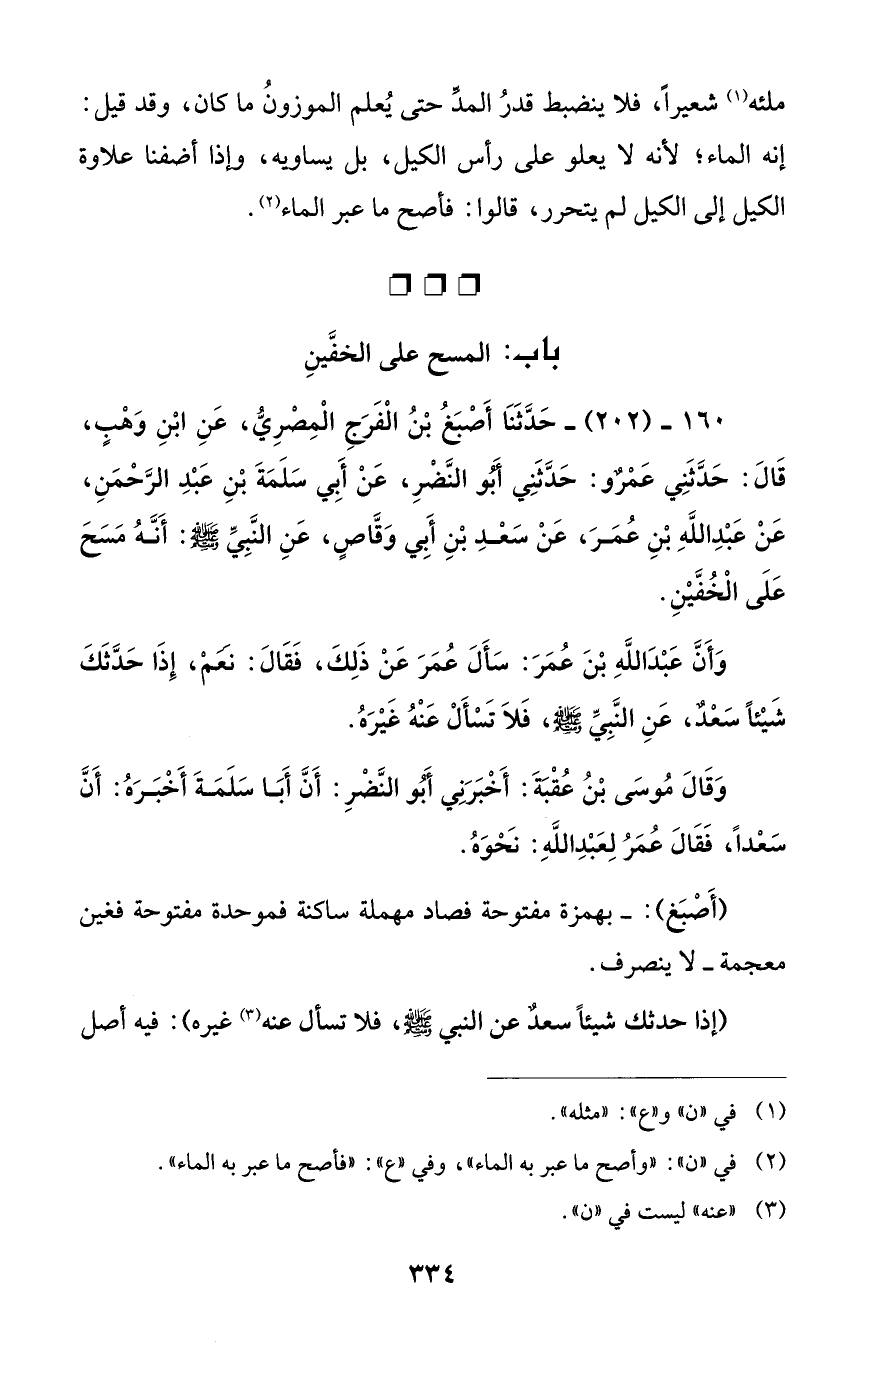 ملئه(١) شعيراً، فلا ينضبط قدرُ المدِّ حتى يُعلم الموزونُ ما كان، وقد قيل:
إنه الماء؛ لأنه لا يعلو على رأس الكيل، بل يساويه، وإذا أضفنا علاوة
الكيل إلى الكيل لم يتحرر، قالوا: فأصح ما عبر الماء(٢).
باب: المسح على الخفَّينِ
١٦٠ ـ (٢٠٢) ـ حَدَّثَنَا أَصْبَغُ بْنُ الْفَرَجِ الْمِصْرِيُّ، عَنِ ابْنِ وَهْبٍ،
قَالَ: حَدَّثَنِي عَمْرٌو: حَدَّثَنِي أَبُو النَّضْرِ، عَنْ أَبِي سَلَمَةَ بْنِ عَبْدِ الرَّحْمَنِ،
عَنْ عَبْدِاللَّهِ بْنِ عُمَرَ، عَنْ سَعْدِ بْنِ أَبِي وَقَّاصٍ، عَنِ النَّبِيِّ ﷺ: أَنَّهُ مَسَحَ
عَلَى الْخُفَّيْنِ.
وَأَنَّ عَبْدَاللَّهِ بْنَ عُمَرَ: سَأَلَ عُمَرَ عَنْ ذَلِكَ، فَقَالَ: نَعَمْ، إِذَا حَدَّثَكَ
شَيْئاً سَعْدٌ، عَنِ النَّبِيِّ ﷺ، فَلاَ تَسْأَلْ عَنْهُ غَيْرَهُ.
وَقَالَ مُوسَى بْنُ عُقْبَةَ: أَخْبَرَنِي أَبُو النَّضْرِ: أَنَّ أَبَا سَلَمَةَ أَخْبَرَهُ: أَنَّ
سَعْداً، فَقَالَ عُمَرُ لِعَبْدِاللَّهِ: نَحْوَهُ.
(أَصْبَغ): ـ بهمزة مفتوحة فصاد مهملة ساكنة فموحدة مفتوحة فغين
معجمة ـ لا ينصرف.
(إذا حدثك شيئاً سعدٌ عن النبي ﷺ، فلا تسأل عنه(٣) غيره): فيه أصل
(١) في «ن» و«ع»: «مثله».
(٢) في «ن»: «وأصح ما عبر به الماء»، وفي «ع»: «فأصح ما عبر به الماء».
(٣) «عنه» ليست في «ن».
٣٣٤